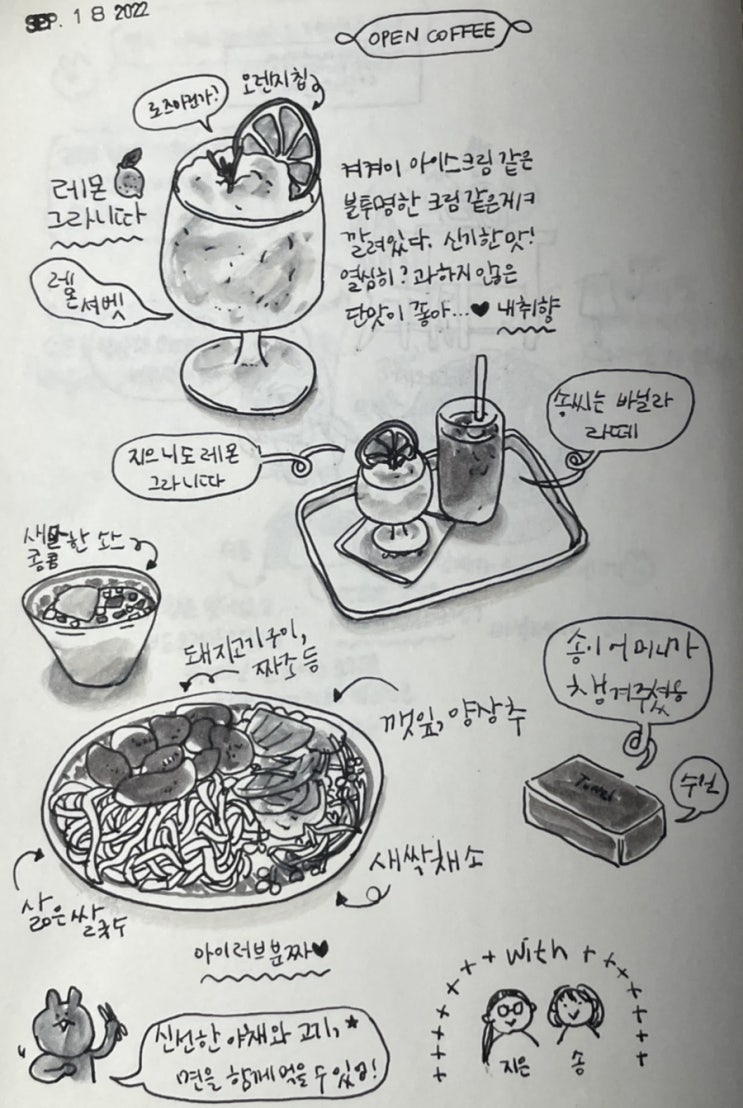 SEP. 18 2022
OPEN COFFEE
로즈마린가?
오렌지칩
레몬
그라니따
레몬
셔벗
켜켜이 아이스크림 같은
불투명한 크림 같은게ㅋ
깔려있다. 신기한 맛!
열심히? 과하지 않은
단맛이 좋아...♥ 내 취향
송씨는 바닐라
라떼
지으니도 레몬
그라니따
새콤한 소스
돼지고기구이,
짜조 등
깻잎, 양상추
송이 어머니가
챙겨주셨음
Towel
수건
새싹채소
삶은 쌀국수
아이러브분짜♥
with
지은
송
신선한 야채와 고기,★
면을 함께 먹을 수 있음!